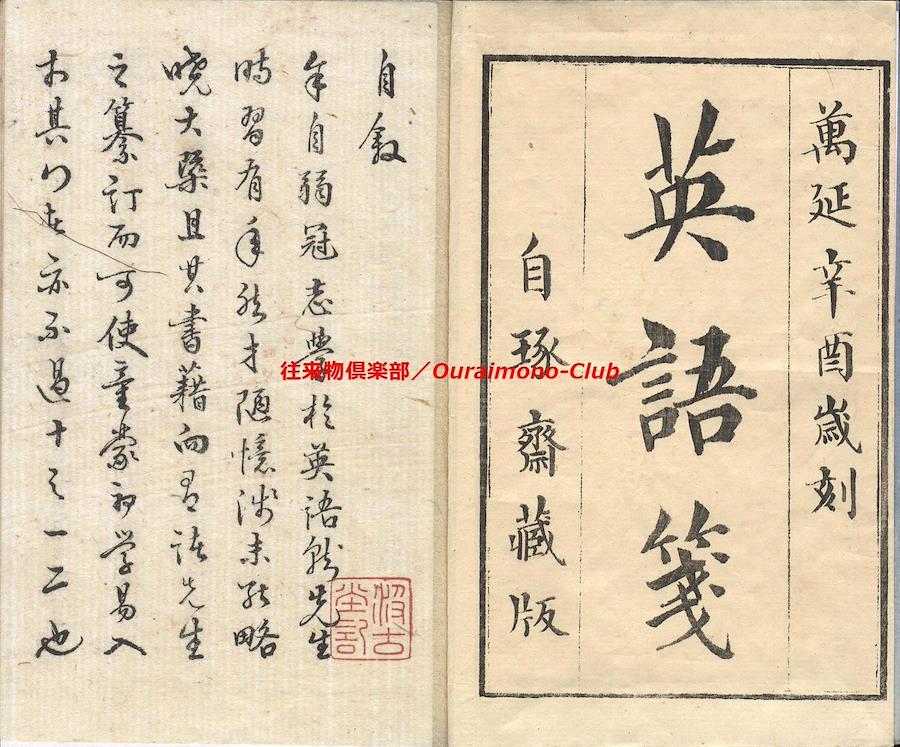 萬延辛酉歳刻
英語箋
自琢齋藏版
自叙
余自弱冠志學於英語就先生
時習有年然才随憶浅未能略
暁大槩且其書藉向有諸先生
之纂訂而可使童蒙初学易入
其門者亦不過十之一二也
往来物倶楽部／Ouraimono-Club